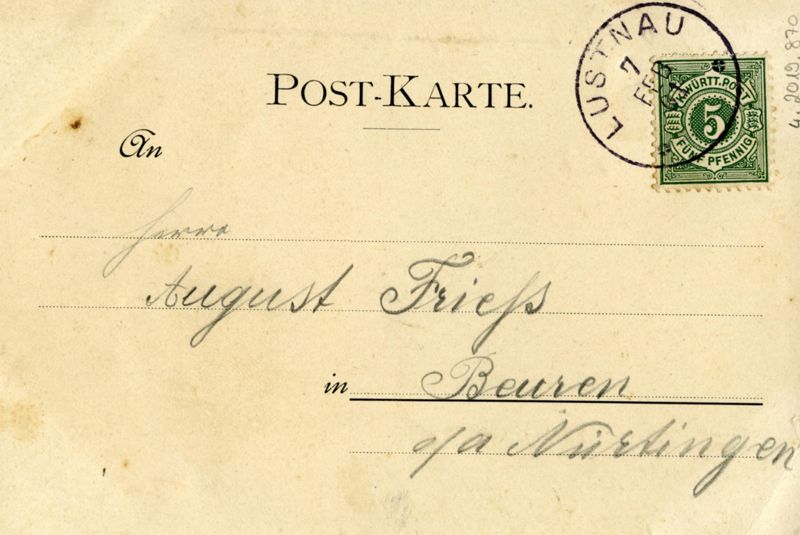 POST-KARTE.
LUSTNAU
7
FEB
K.WÜRTT.POST
5
FÜNF PFENNIG
4. 2019. 870
An
Herrn
August Frieß
in Beuren
o/a Nürtingen